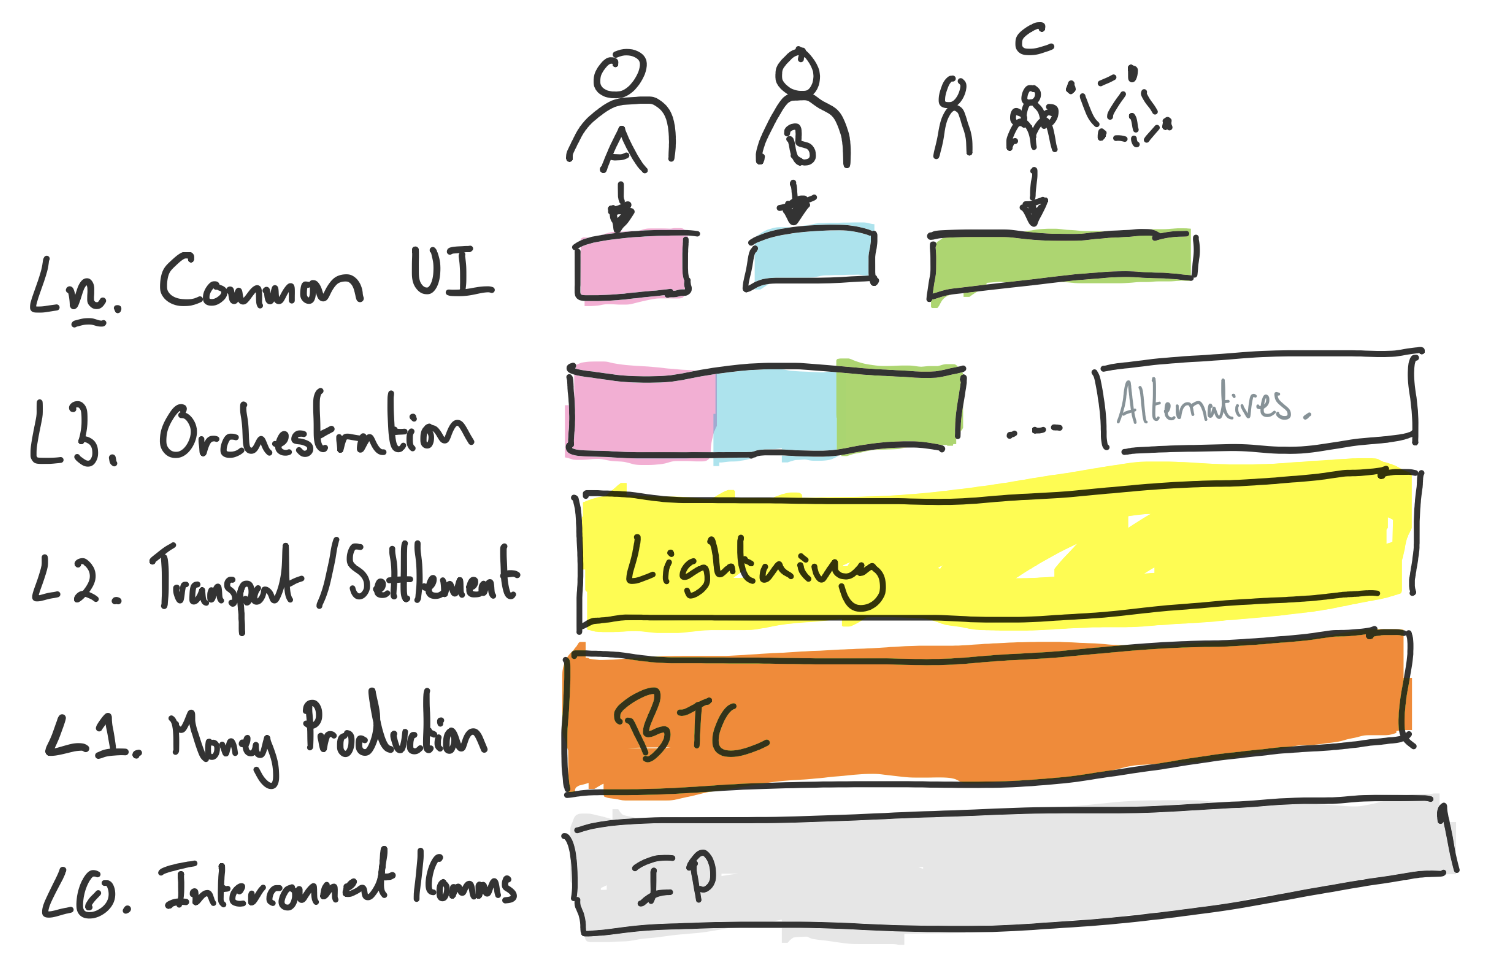 C
A
B
Ln. Common UI
L3. Orchestration
Alternatives.
L2. Transport/Settlement
Lightning
L1. Money Production
BTC
L0. Interconnect/Comms
IP